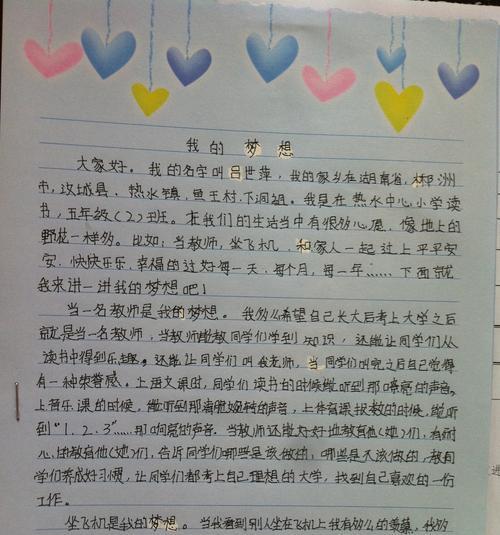 我的 梦想
大家好。我的名字叫吕世萍，我的家乡在湖南省，郴洲
市，汝城县，热水镇，鱼王村，下洞组。我是在热水中心小学读
书，五年级（2）班。在我们的生活当中有很多心愿，像地上的
野花一样多。比如：当教师，坐飞机，和家人一起过上平平安
安，快快乐乐，幸福的过好每一天，每个月，每一年……下面就
我来讲一讲我的梦想吧！
当一名教师是我的梦想。我多么希望自己长大后考上大学之后
就是当一名教师，当教师能教同学们学到知识，还能让同学们从
读书中得到乐趣。还能让同学们叫我老师，当同学们叫完之后自己觉得
有一种荣誉感，上语文课时，同学们读书的时候能听到那嘹亮的声音。
上音乐课的时候，能听到那清脆婉转的声音，上体育课报数的时候，能听
到“1．2．3”……那响亮的声音。当教师还能好好地教育他（她）们，有耐
心的教育他（她）们，告诉同学们哪些是该做的，哪些是不该做的，教同
学们养成好习惯，让同学们都考上自己理想的大学，找到自己喜欢的一份
工作。
坐飞机是我的梦想。当我看到别人坐在飞机上我有多么的羡慕，我多